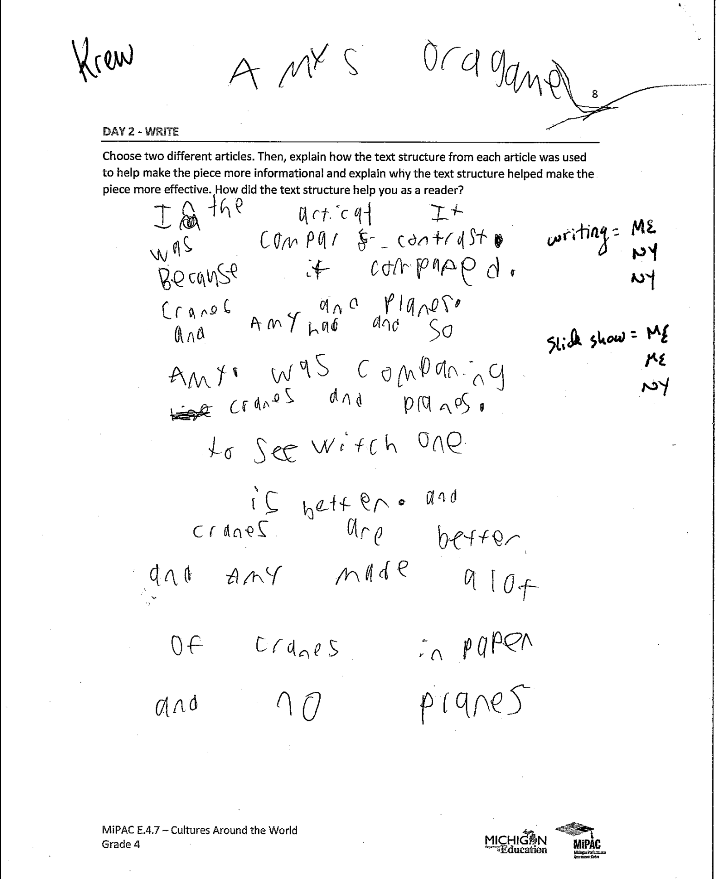 Krew
AMYS Oragane
8
DAY 2 - WRITE
Choose two different articles. Then, explain how the text structure from each article was used
to help make the piece more informational and explain why the text structure helped make the
piece more effective. How did the text structure help you as a reader?
I the articat It
was compar & contrast.
Because it compaped.
Cranes and Planes.
and AMY had and so
AMY. was companing
cranes and pranes.
to see witch one
is better. and
cranes are better
and AMY made alot
of cranes in paper
and no pranes
writing = ME
NY
NY
Slide show = ME
ME
NY
MiPAC E.4.7 – Cultures Around the World
Grade 4
MICHIGAN
Education
MiPAC